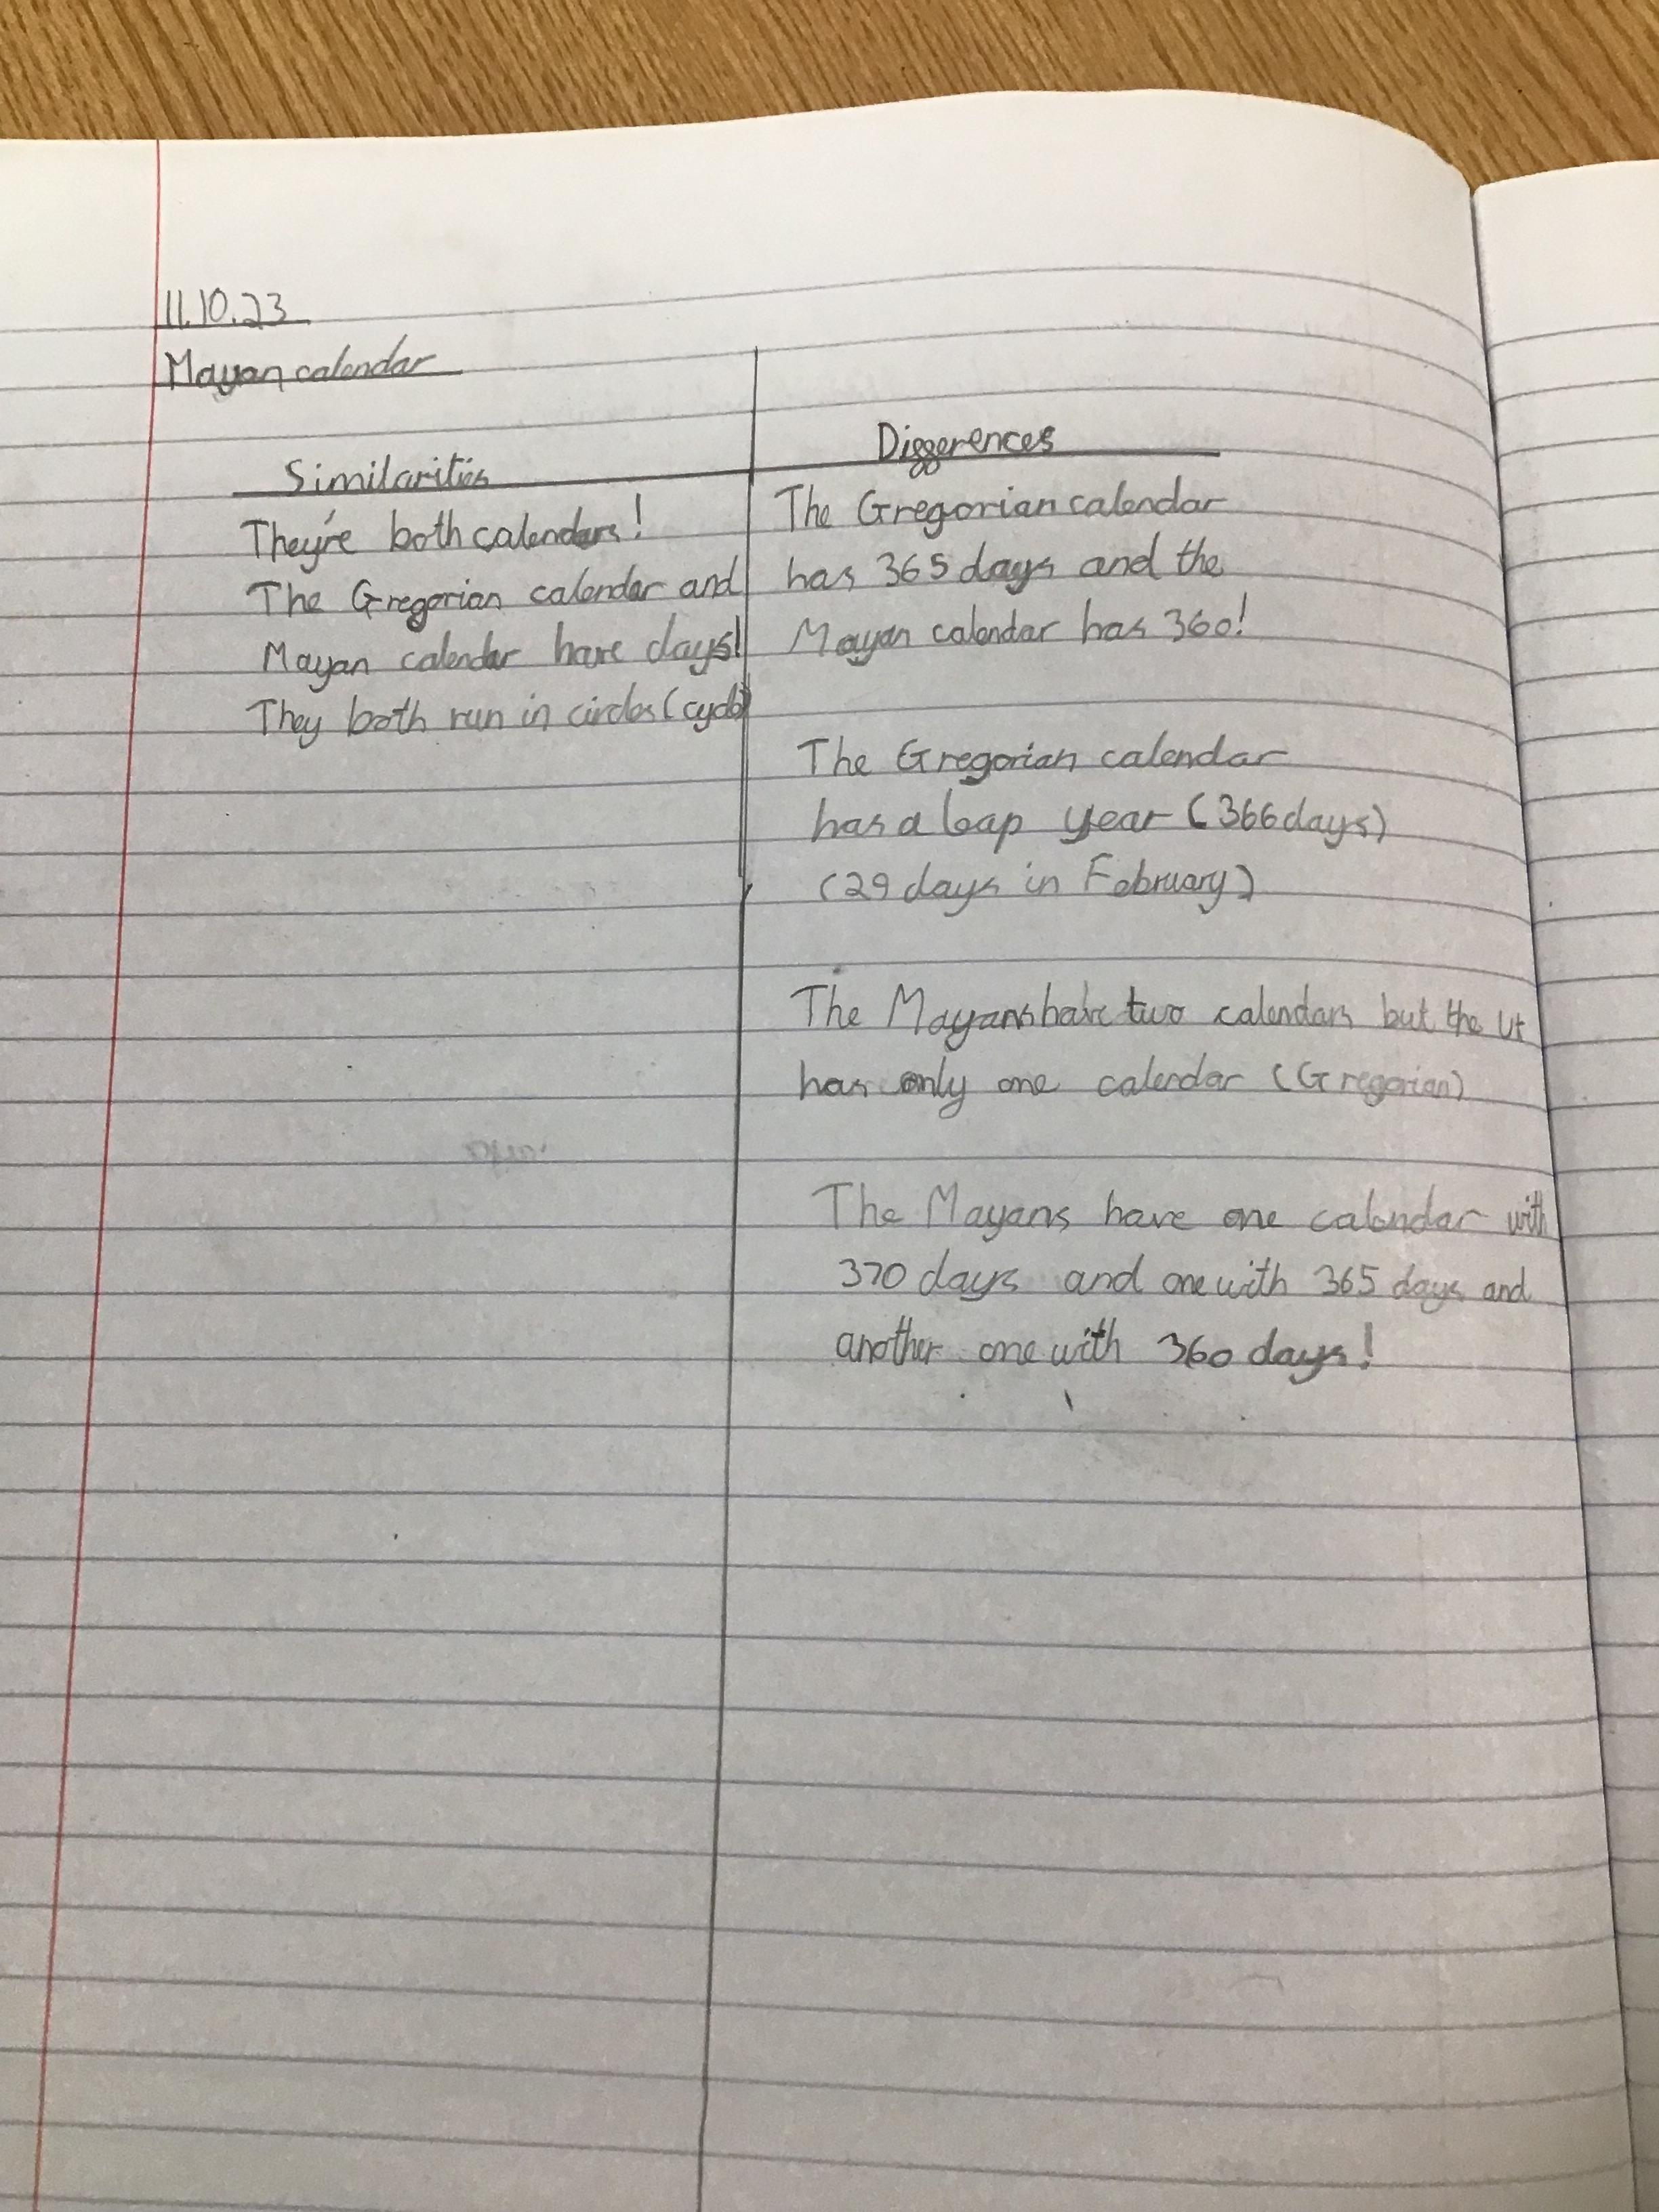 11.10.23
Mayan calendar
Similarities
They're both calenders!
The Gregorian calendar and
Mayan calendar have days!
They both run in circles (cycle)
Differences
The Gregorian calendar
has 365 days and the
Mayan calendar has 360!
The Gregorian calendar
has a leap year (366 days)
(29 days in February)
The Mayans have two calendars but the
has only one calendar (Gregorian)
The Mayans have one calendar with
370 days and one with 365 days and
another one with 360 days!